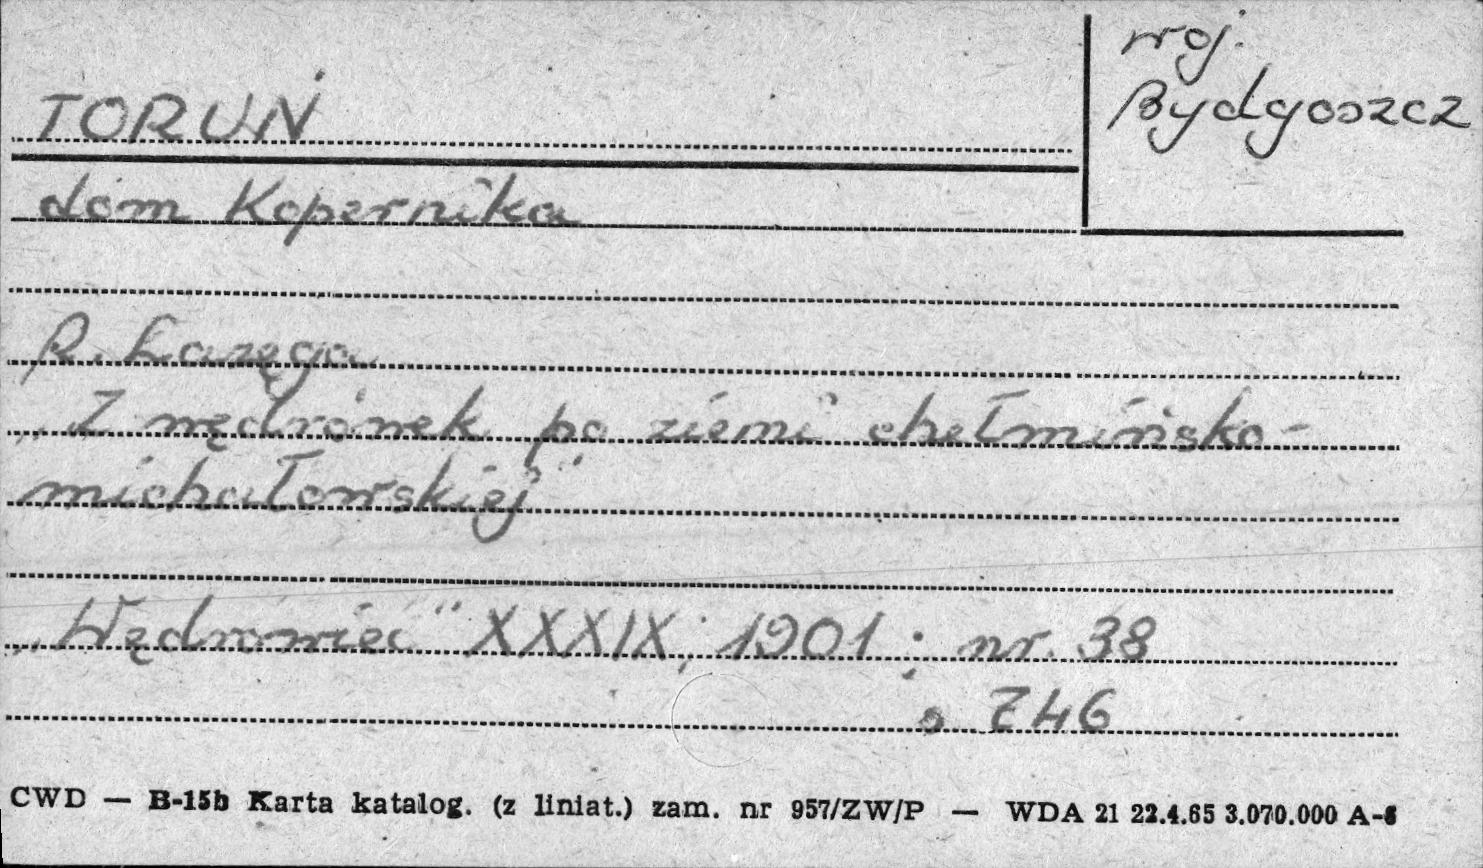 TORUŃ
woj.
Bydgoszcz
dom Kopernika
R. Łazęga
„Z wędrówek po ziemi chełmińsko-
michałowskiej"
„Wędrowiec" XXXIX; 1901; nr. 38
s 746
CWD — B-15b Karta katalog. (z liniat.) zam. nr 957/ZW/P — WDA 21 22.4.65 3.070.000 A-6